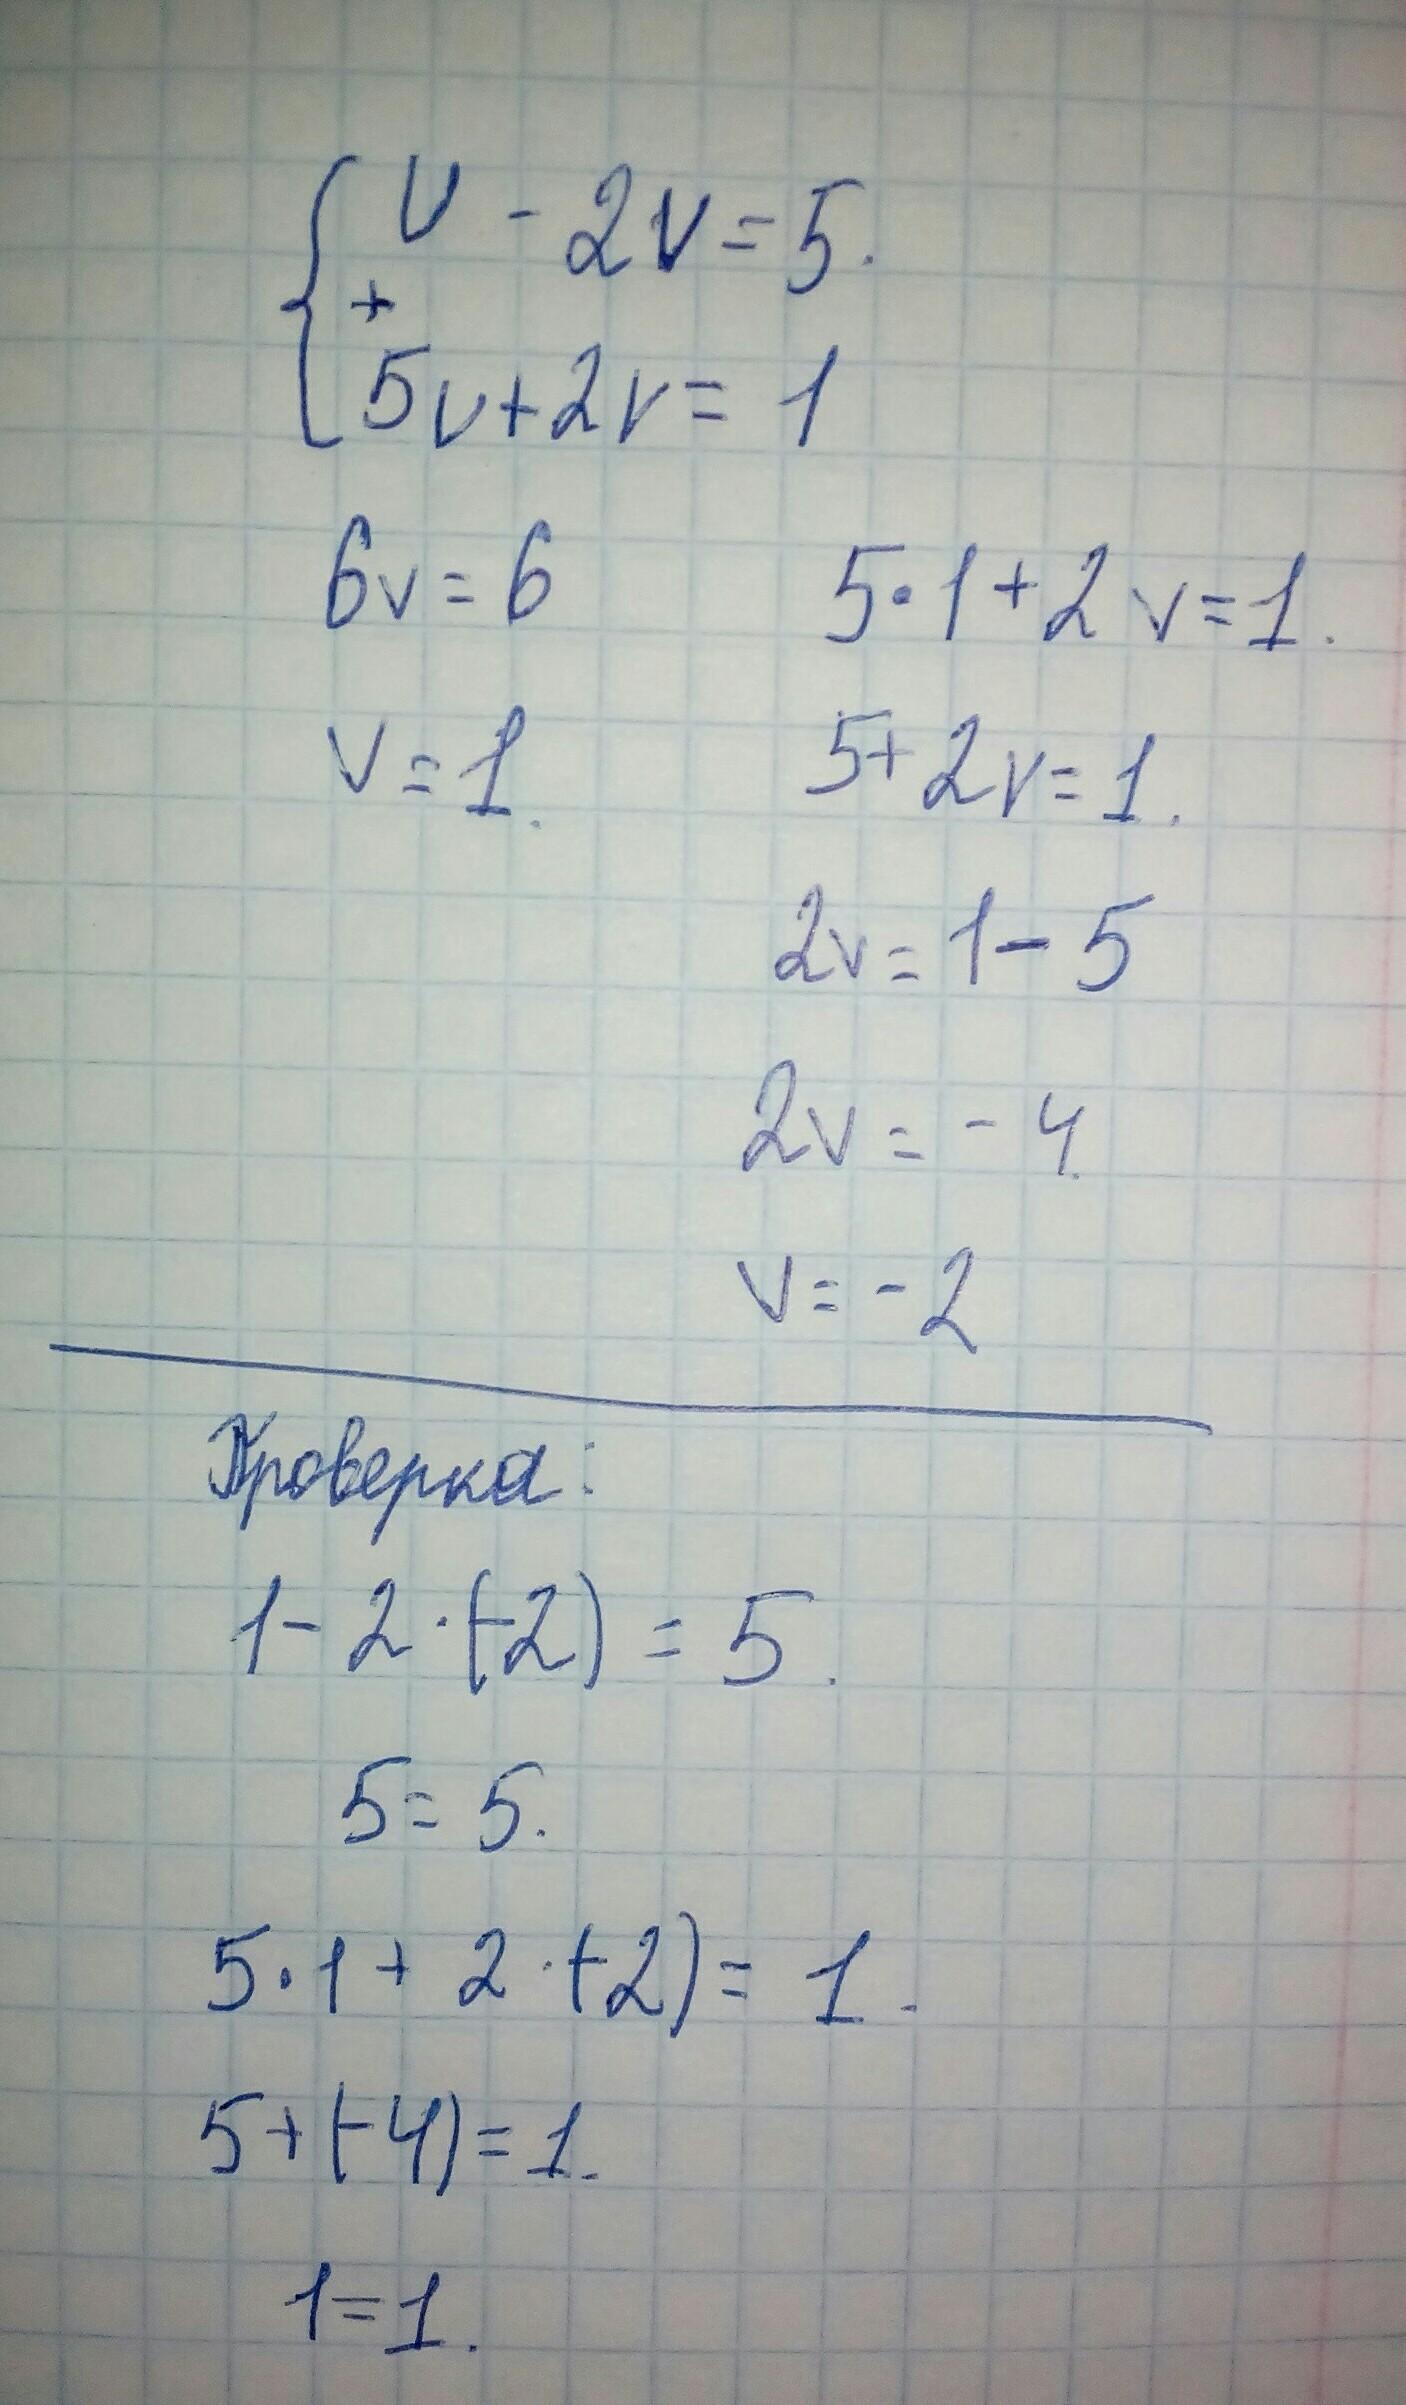 v - 2v = 5.
+
5v + 2v = 1
6v = 6
v = 1.
5·1 + 2v = 1.
5 + 2v = 1.
2v = 1 - 5
2v = - 4.
v = - 2
Проверка:
1 - 2·(-2) = 5.
5 = 5.
5·1 + 2·(-2) = 1.
5 + (-4) = 1.
1 = 1.